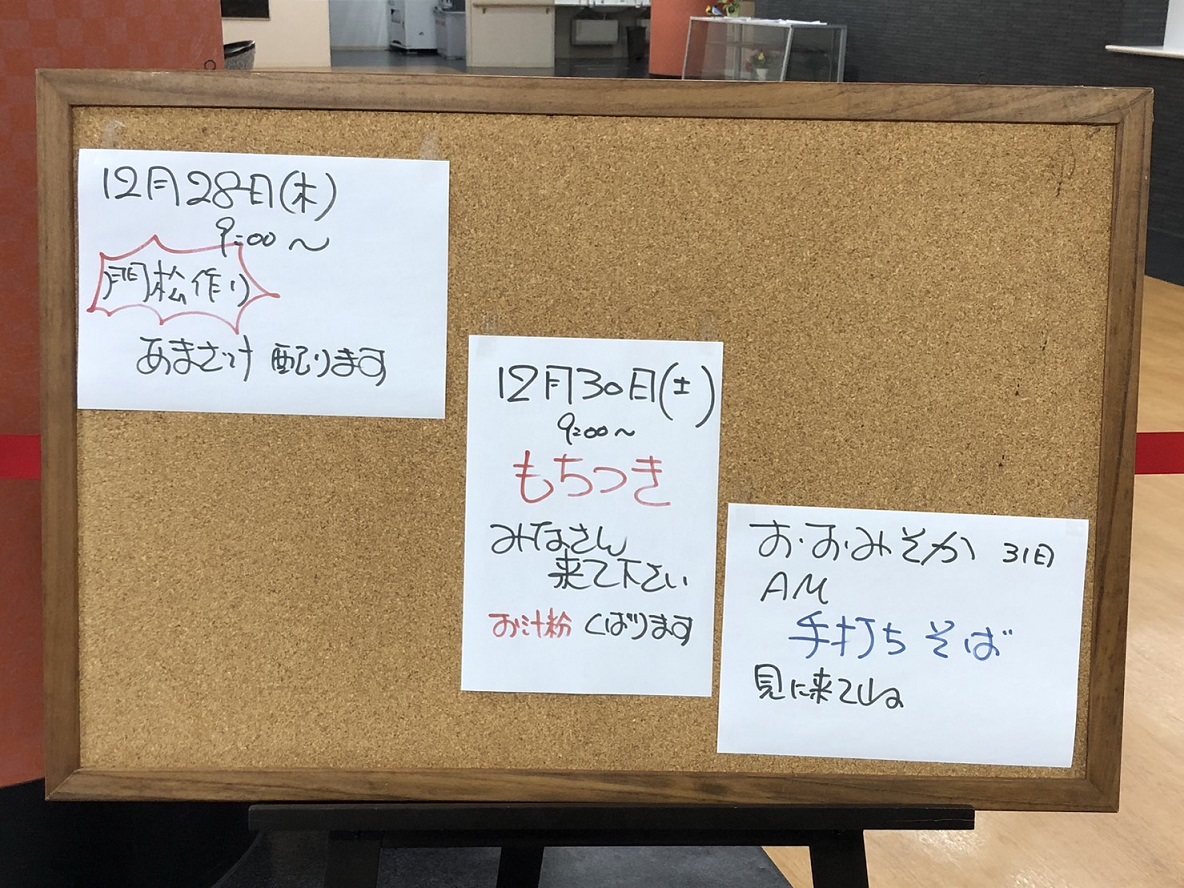 12月28日(木)
9:00～
門松作り
あまさけ 配ります
12月30日(土)
9:00～
もちつき
みなさん
来て下さい
お汁粉 くばります
おおみそか 31日
AM
手打ち そば
見に来てね